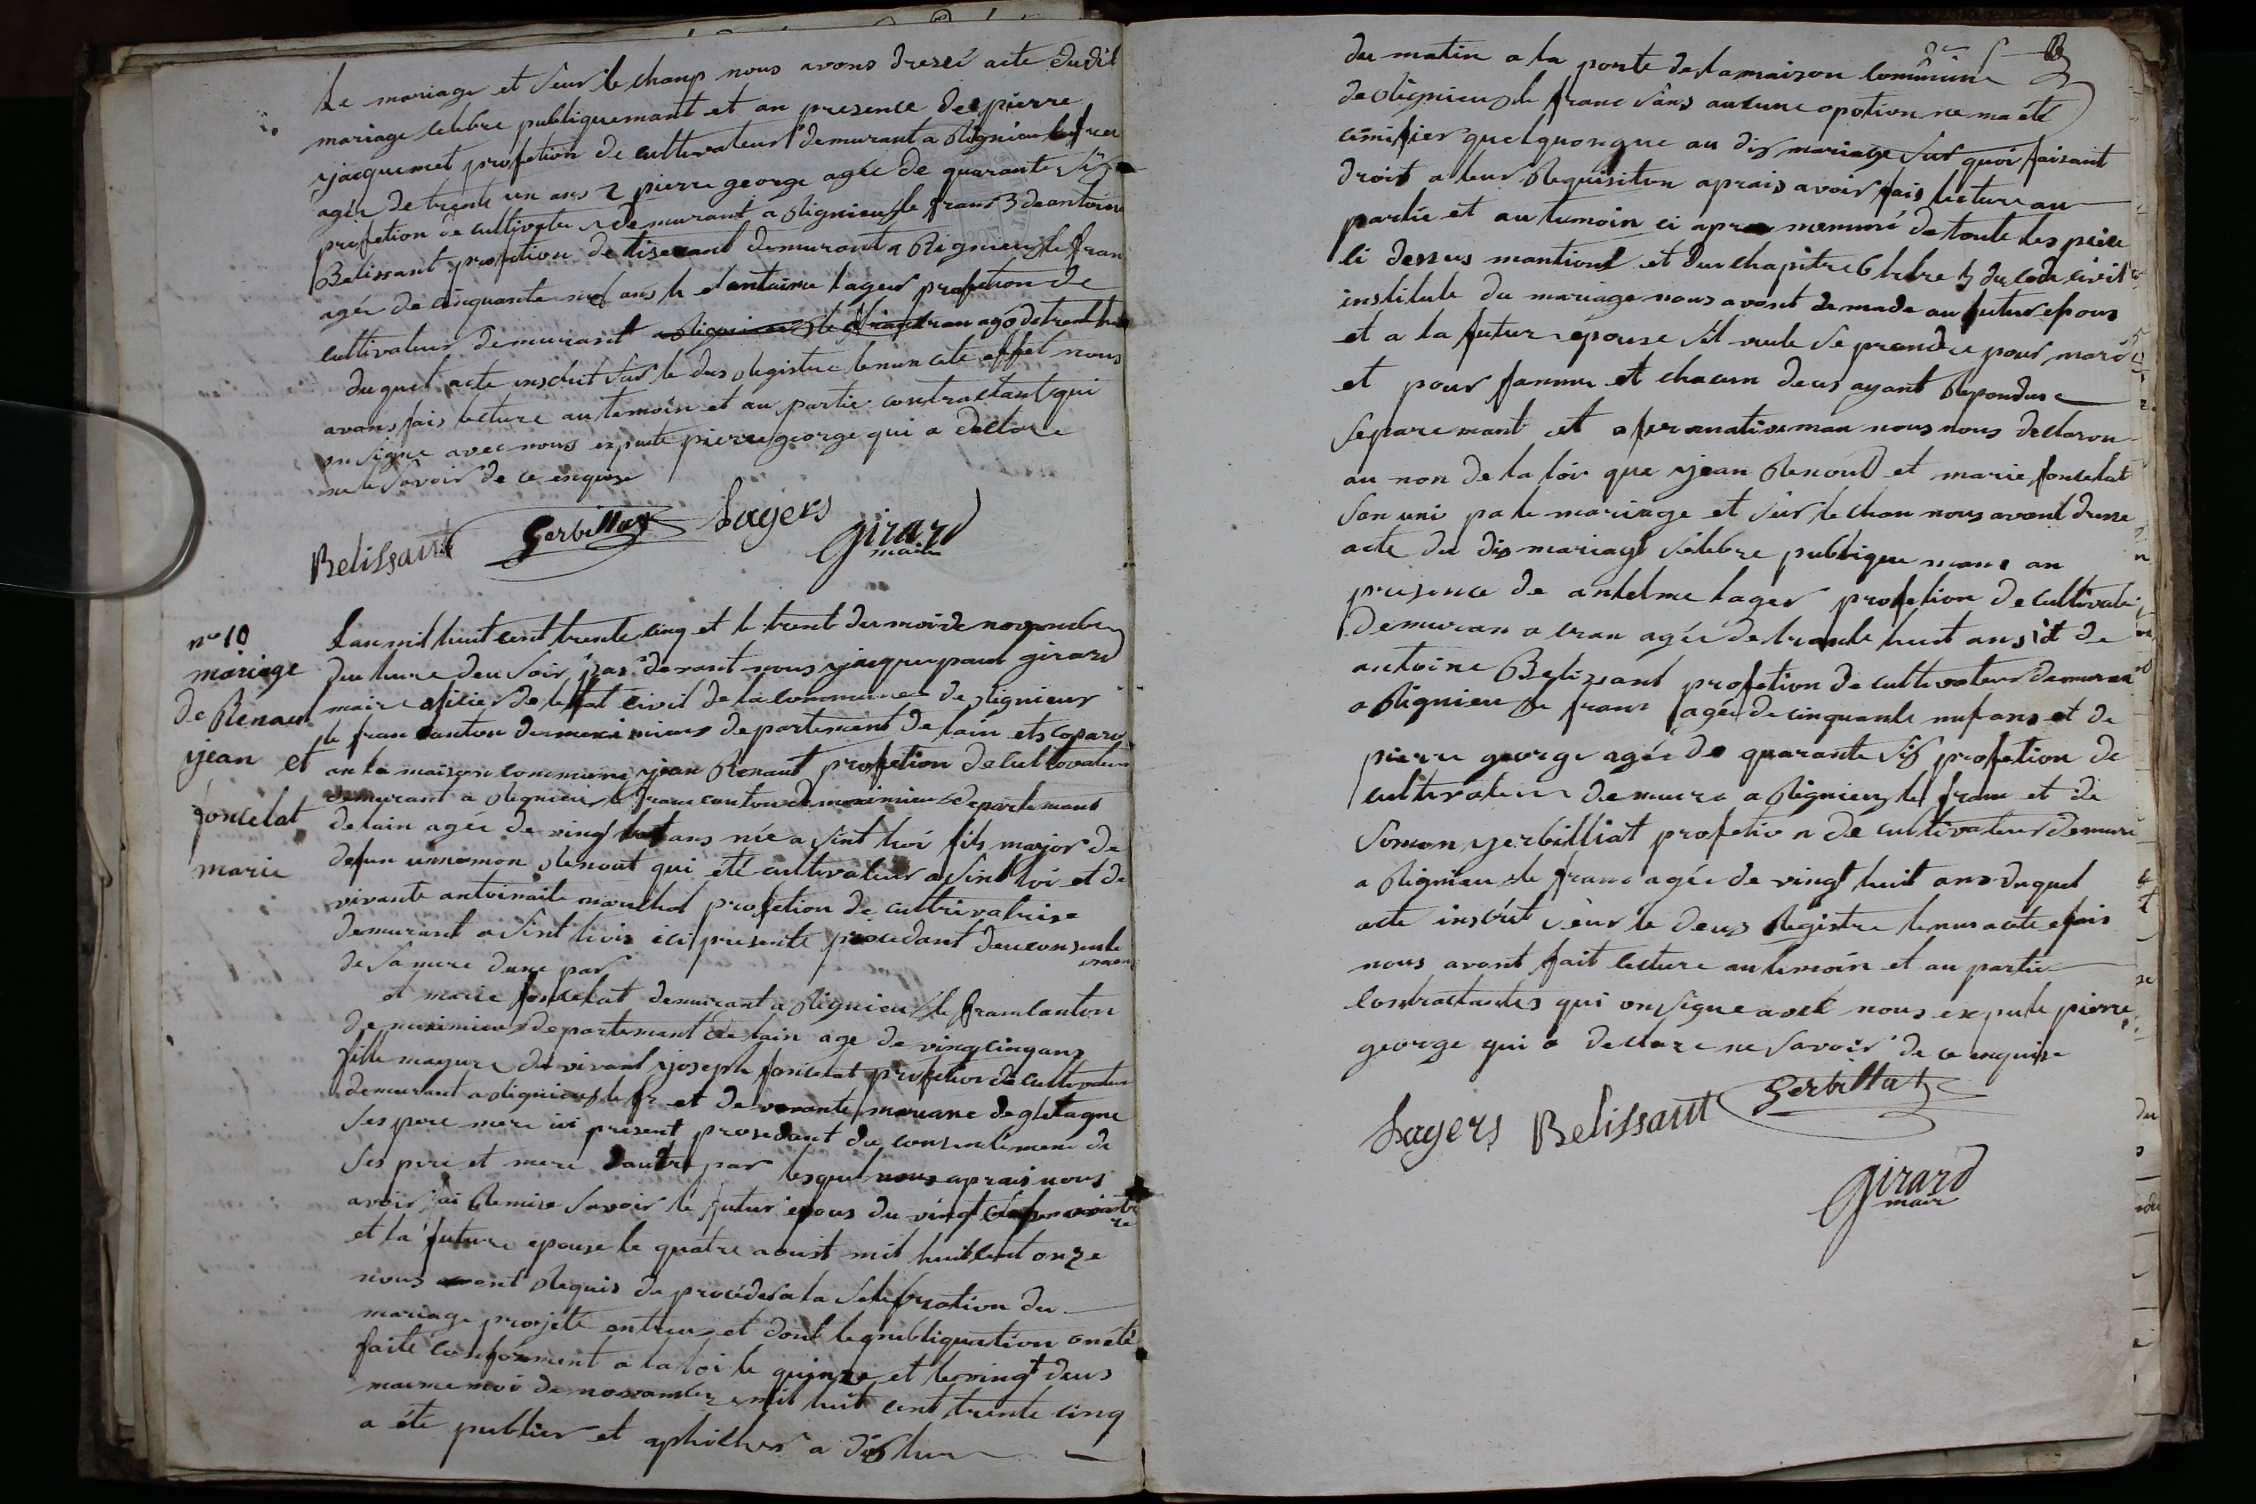 le mariage et seur le champ nous avons dressé acte dudit
mariage celebre publiquemant et an presence de pierre
yjacquemet profetion de cultivateur demurant a Rignieu le fran
agée de trente un ans 2 pierre george agée de quarante six
profetion de cultivateur demurant a Rignieu le franc 3 de antoine
Belissant profetion de tiserant demurant a Rignieux le fran
agée de cinquante neuf ans et dantoine lager profetion de
cultivateur demurant a Rignieux le franc cran agé de trent
duquel acte inscrit sur le deus Registre tenu a cete effet nous
avons fais lecture au temoin et au partie contractant qui
on signe avec nous expecte pierre george qui a declare
ne le savoir de ce enquise
Belissant Gerbillat Lagers
girard
maire
n° 10
mariage
de Renaud
yjean et
fonselat
marie
Lan mil huit cent trente cinq et le trent du moi de novembre
du hure deu soir par devant nous yjacque paul girard
maire oficier de letat civil de la commune de Rignieux
le fran canton de meximieux departement de lain et comparu
an la maison commune yjean Renaut profetion de cultivateur
demurant a Rignieu le franc canton de meximieu departemant
de lain agée de vingt huit ans née a sint loi fils major de
defun unnemon Renout qui été cultivateur a sint loi et de
vivante antoinaite marechal profetion de cultivatrise
demurant a sint livis ici presente procedant deu consente
ment
de sa mere dune par
et marie fonselat demurant a Rignieu le franc canton
de meximieux departemant de lain age de ving cinq ans
fille mayure de vivant yjoseph fonselat profetion de cultivateur
demurant a Rignieux le fr et de vivante mariane de gletagne
ses pere mere ici present prosedant du consentement de
ses pere et mere dautre par lesquel nous aprais nous
avoir jai Remise savoir le futur epous du vingt
et la future epouse le quatre aoust mil huit cent onze
nous avont Requis de procéder a la selebration du
mariage projeté entreus et dont le publiquation on été
faite conforment a la loi le quinze et le vingt deus
maime moi de novambre mil huit cent trente cinq
a éte publier et aphicher a dix hure
du matin a la porte de la maison commune
de Rignieux le franc sans aucune opotion ne ma été
cinifier quelquonque au dis mariage sur quoi faisant
droit a leur Requisiton aprais avoir fais lecture au
partie et au temoin ci apre nommé de toute les piece
ci dessus mantioné et du chapitre 6 livre 5 du code civil
institule du mariage nous avont demade au futur epous
et a la futur epouse sil veule se prendre pour mari
et pour famme et chacun deus ayant Repondue
separemant et afermativeman nous nous declaron
au non de la loi que yjean Renoud et marie fonselat
son uni pa le mariage et sur le chan nous avont dresse
acte du dis mariage selebre publique mant an
presence de antelme lager profetion de cultivate
demuran a cran agée de trante huit ans et de
antoine Belissant profetion de cultivateur demuran
a Rignieu le franc agée de cinquante nuf ans et de
pierre george agée de quarante six profetion de
cultivateur demura a Rignieux le franc et de
Simon yerbilliat profetion de cultivateur demure
a Rignieu le franc agée de vingt huit ans duquel
acte inscrit seur le deus Registre tenus a cete efais
nous avont fait lecture au temoin et au partie
contractantes qui on signe avec nous expete pierre
george qui a declare ne savoir de ce enquise
Lagers Belissant Gerbillat
girard
maire